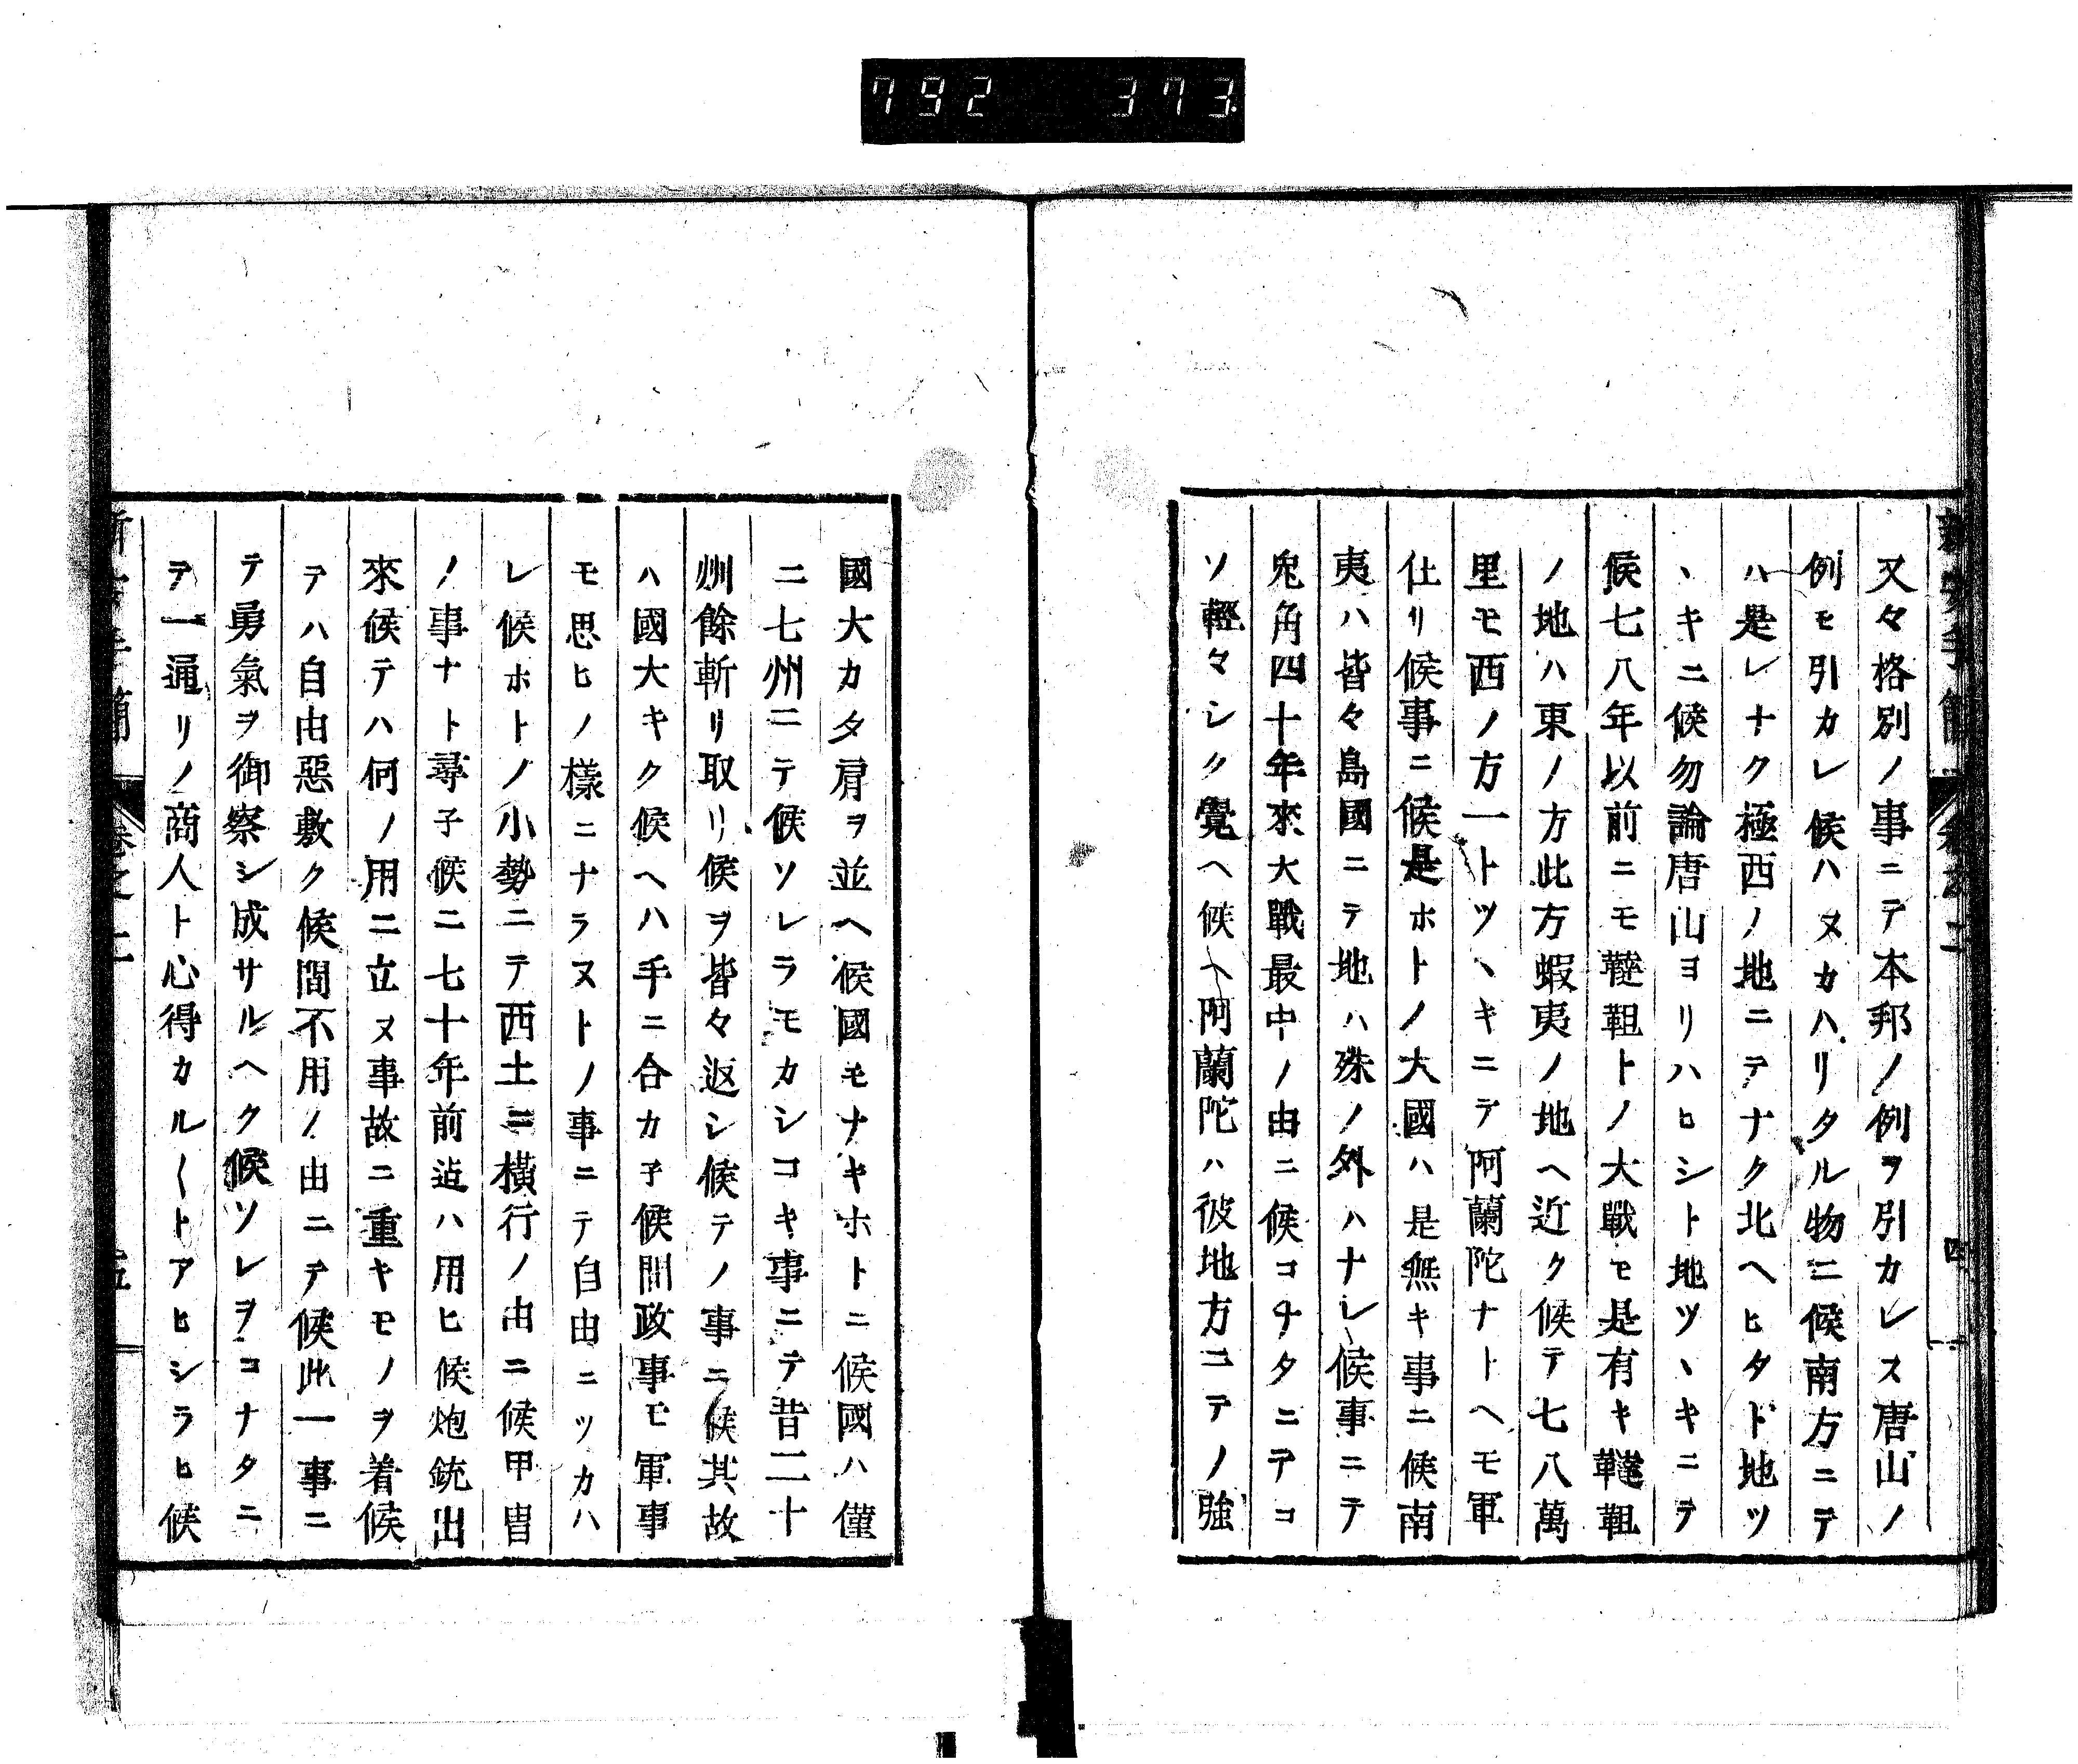 792 373
又々格別ノ事ニテ本邦ノ例ヲ引カレス唐山ノ
例モ引カレ候ハヌカハリタル物ニ候南方ニテ
ハ是レナク極西ノ地ニテナク北ヘヒタト地ツ
ヽキニ候勿論唐山ヨリハヒシト地ツヽキニテ
候七八年以前ニモ韃靼トノ大戰モ是有キ韃靼
ノ地ハ東ノ方此方蝦夷ノ地ヘ近ク候テ七八萬
里モ西ノ方一トツヽキニテ阿蘭陀ナトヘモ軍
仕リ候事ニ候是ホトノ大國ハ是無キ事ニ候南
夷ハ皆々島國ニテ地ハ殊ノ外ハナレ候事ニテ
兔角四十年來大戰最中ノ由ニ候コナタニテコ
ソ輕々マシク覺ヘ候ヘ阿蘭陀ハ彼地方ニテノ強
國大カタ肩ヲ並ヘ候國モナキホトニ候國ハ僅
ニ七州ニテ候ソレラモカシコキ事ニテ昔二十
州餘斬リ取リ候ヲ皆々返シ候テノ事ニ候其故
ハ國大キク候ヘハ手ニ合カ子候間政事モ軍事
モ思ヒノ樣ニナラヌトノ事ニテ自由ニツカハ
レ候ホトノ小勢ニテ西土ニ橫行ノ由ニ候甲冑
ノ事ナト尋子候ニ七十年前迠ハ用ヒ候炮銃出
來候テハ何ノ用ニ立ヌ事故ニ重キモノヲ着候
テハ自由惡敷ク候間不用ノ由ニテ候此一事ニ
テ勇氣ヲ御察シ成サルヘク候ソレヲコナタニ
テ一通リノ商人ト心得カル〱トアヒシラヒ候